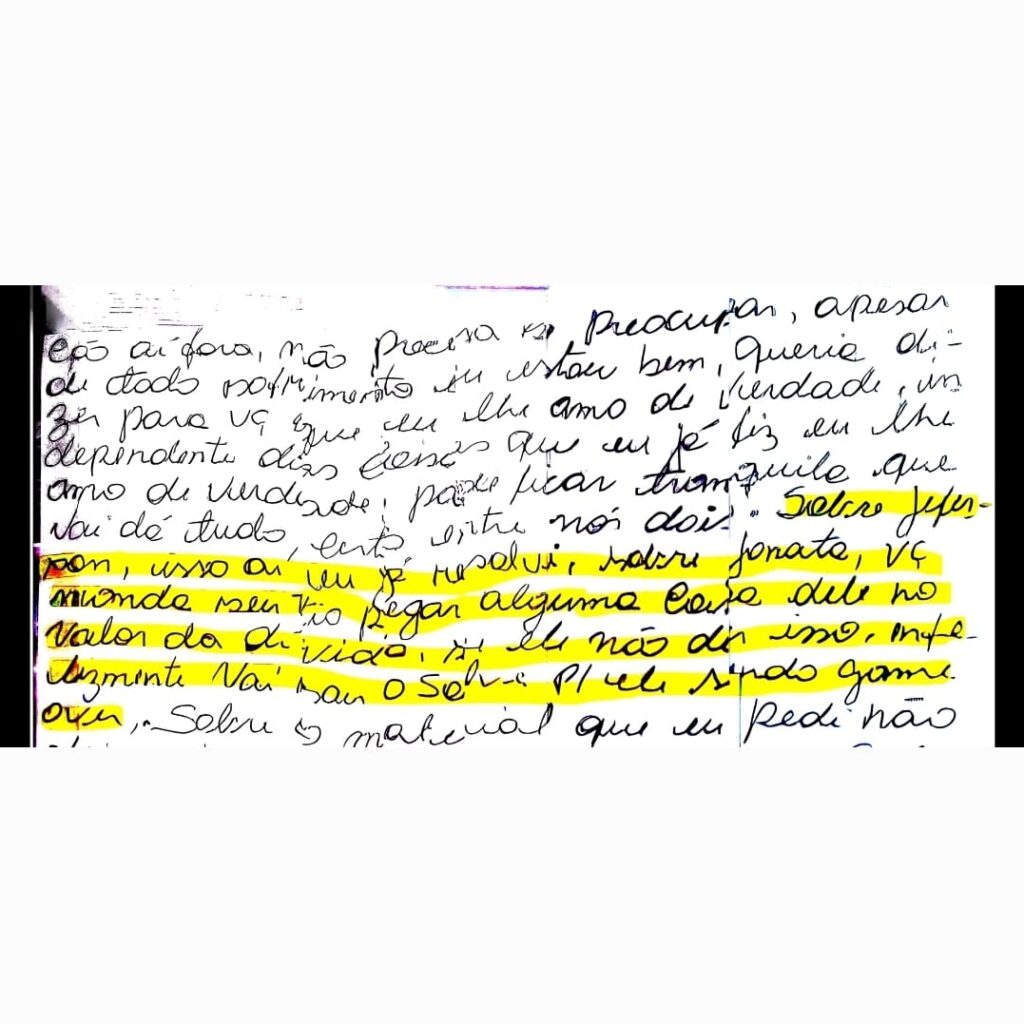 ção aí fora, não precisa se preocupar, apesar
de todo sofrimento eu estou bem, queria di-
zer para vç que eu lhe amo de verdade, in
dependente das coisas que eu já fiz eu lhe
amo de verdade, pode ficar tranquila que
vai dá tudo certo entre nós dois. Sobre Jefer-
son, isso aí eu já resolvi, sobre Jonata, vç
manda seu tio pegar alguma coisa dele no
valor da divida, se ele não der isso, infe-
lizmente vai sair o salve p/ ele sindo game
over, Sobre o material que eu pedi não